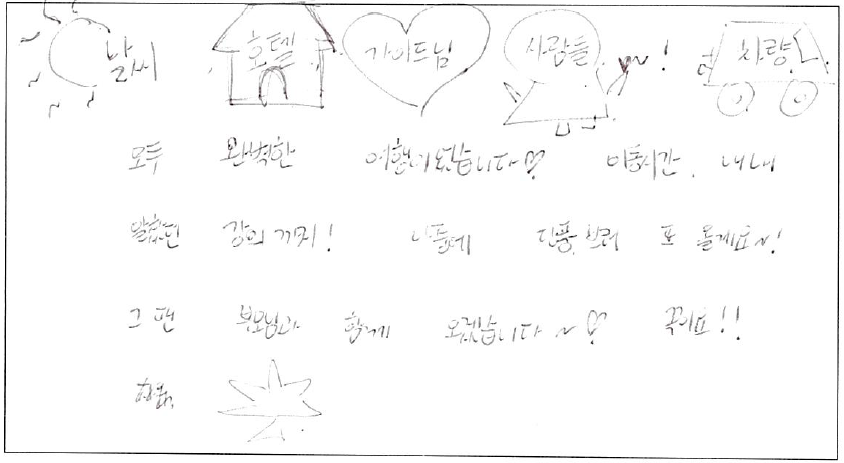 날씨 호텔 가이드님 사람들 ~! 차량
모두 완벽한 여행이였습니다 이동시간 내내
알찬 강의까지! 나중에 단풍 보러 또 올게요~!
그 땐 부모님과 함께 오겠습니다~ 꼭이요!!